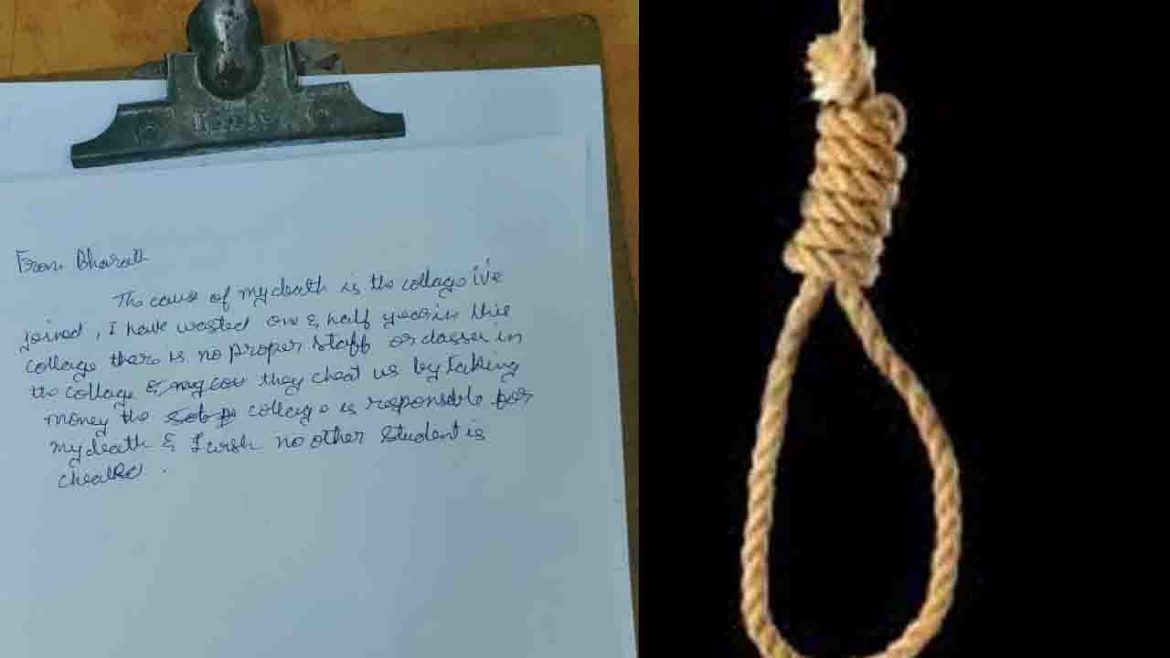 From Bharath
The cause of my death is the collage iv'e
joined, I have wasted one & half year in this
collage there is no proper staff or classes in
the collage & they cheat us by taking
money the collage is responsible for
my death & I wish no other student is
cheated.